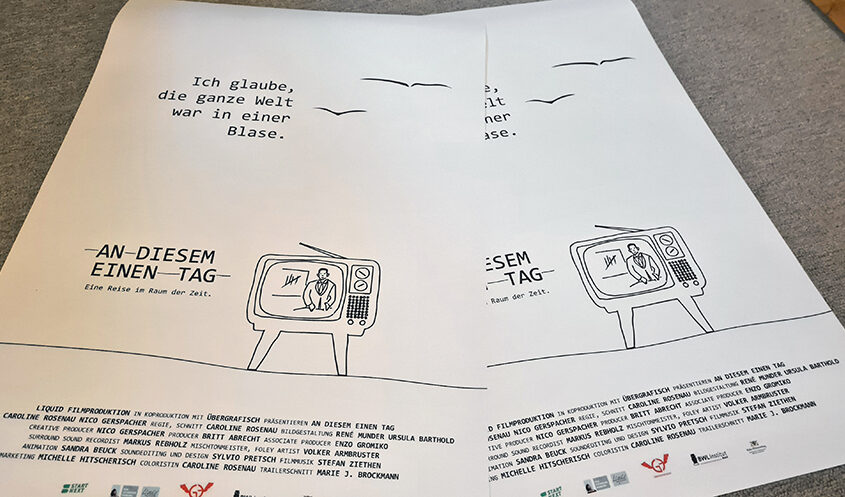 Ich glaube,
die ganze Welt
war in einer
Blase.
AN DIESEM
EINEN TAG
Eine Reise im Raum der Zeit.
LIQUID FILMPRODUKTION IN KOPRODUKTION MIT ÜBERGRAFISCH PRÄSENTIEREN AN DIESEM EINEN TAG
CAROLINE ROSENAU NICO GERSPACHER REGIE, SCHNITT CAROLINE ROSENAU BILDGESTALTUNG RENÉ MUNDER URSULA BARTHOLD
CREATIVE PRODUCER NICO GERSPACHER PRODUCER BRITT ABRECHT ASSOCIATE PRODUCER ENZO GROMIKO
SURROUND SOUND RECORDIST MARKUS REBHOLZ MISCHTONMEISTER, FOLEY ARTIST VOLKER ARMBRUSTER
ANIMATION SANDRA BEUCK SOUNDEDITING UND DESIGN SYLVIO PRETSCH FILMMUSIK STEFAN ZIETHEN
MARKETING MICHELLE HITSCHERISCH COLORISTIN CAROLINE ROSENAU TRAILERSCHNITT MARIE J. BROCKMANN
START
NEXT
e,
elt
ner
ase.
ESEM
TAG
m Raum der Zeit.
FILMPRODUKTION IN KOPRODUKTION MIT ÜBERGRAFISCH PRÄSENTIEREN AN DIESEM EINEN TAG
OSENAU NICO GERSPACHER REGIE, SCHNITT CAROLINE ROSENAU BILDGESTALTUNG RENÉ MUNDER URSULA BARTHOLD
PRODUCER NICO GERSPACHER PRODUCER BRITT ABRECHT ASSOCIATE PRODUCER ENZO GROMIKO
SOUND RECORDIST MARKUS REBHOLZ MISCHTONMEISTER, FOLEY ARTIST VOLKER ARMBRUSTER
SANDRA BEUCK SOUNDEDITING UND DESIGN SYLVIO PRETSCH FILMMUSIK STEFAN ZIETHEN
MICHELLE HITSCHERISCH COLORISTIN CAROLINE ROSENAU TRAILERSCHNITT MARIE J. BROCKMANN
START
NEXT
BWLinstitut